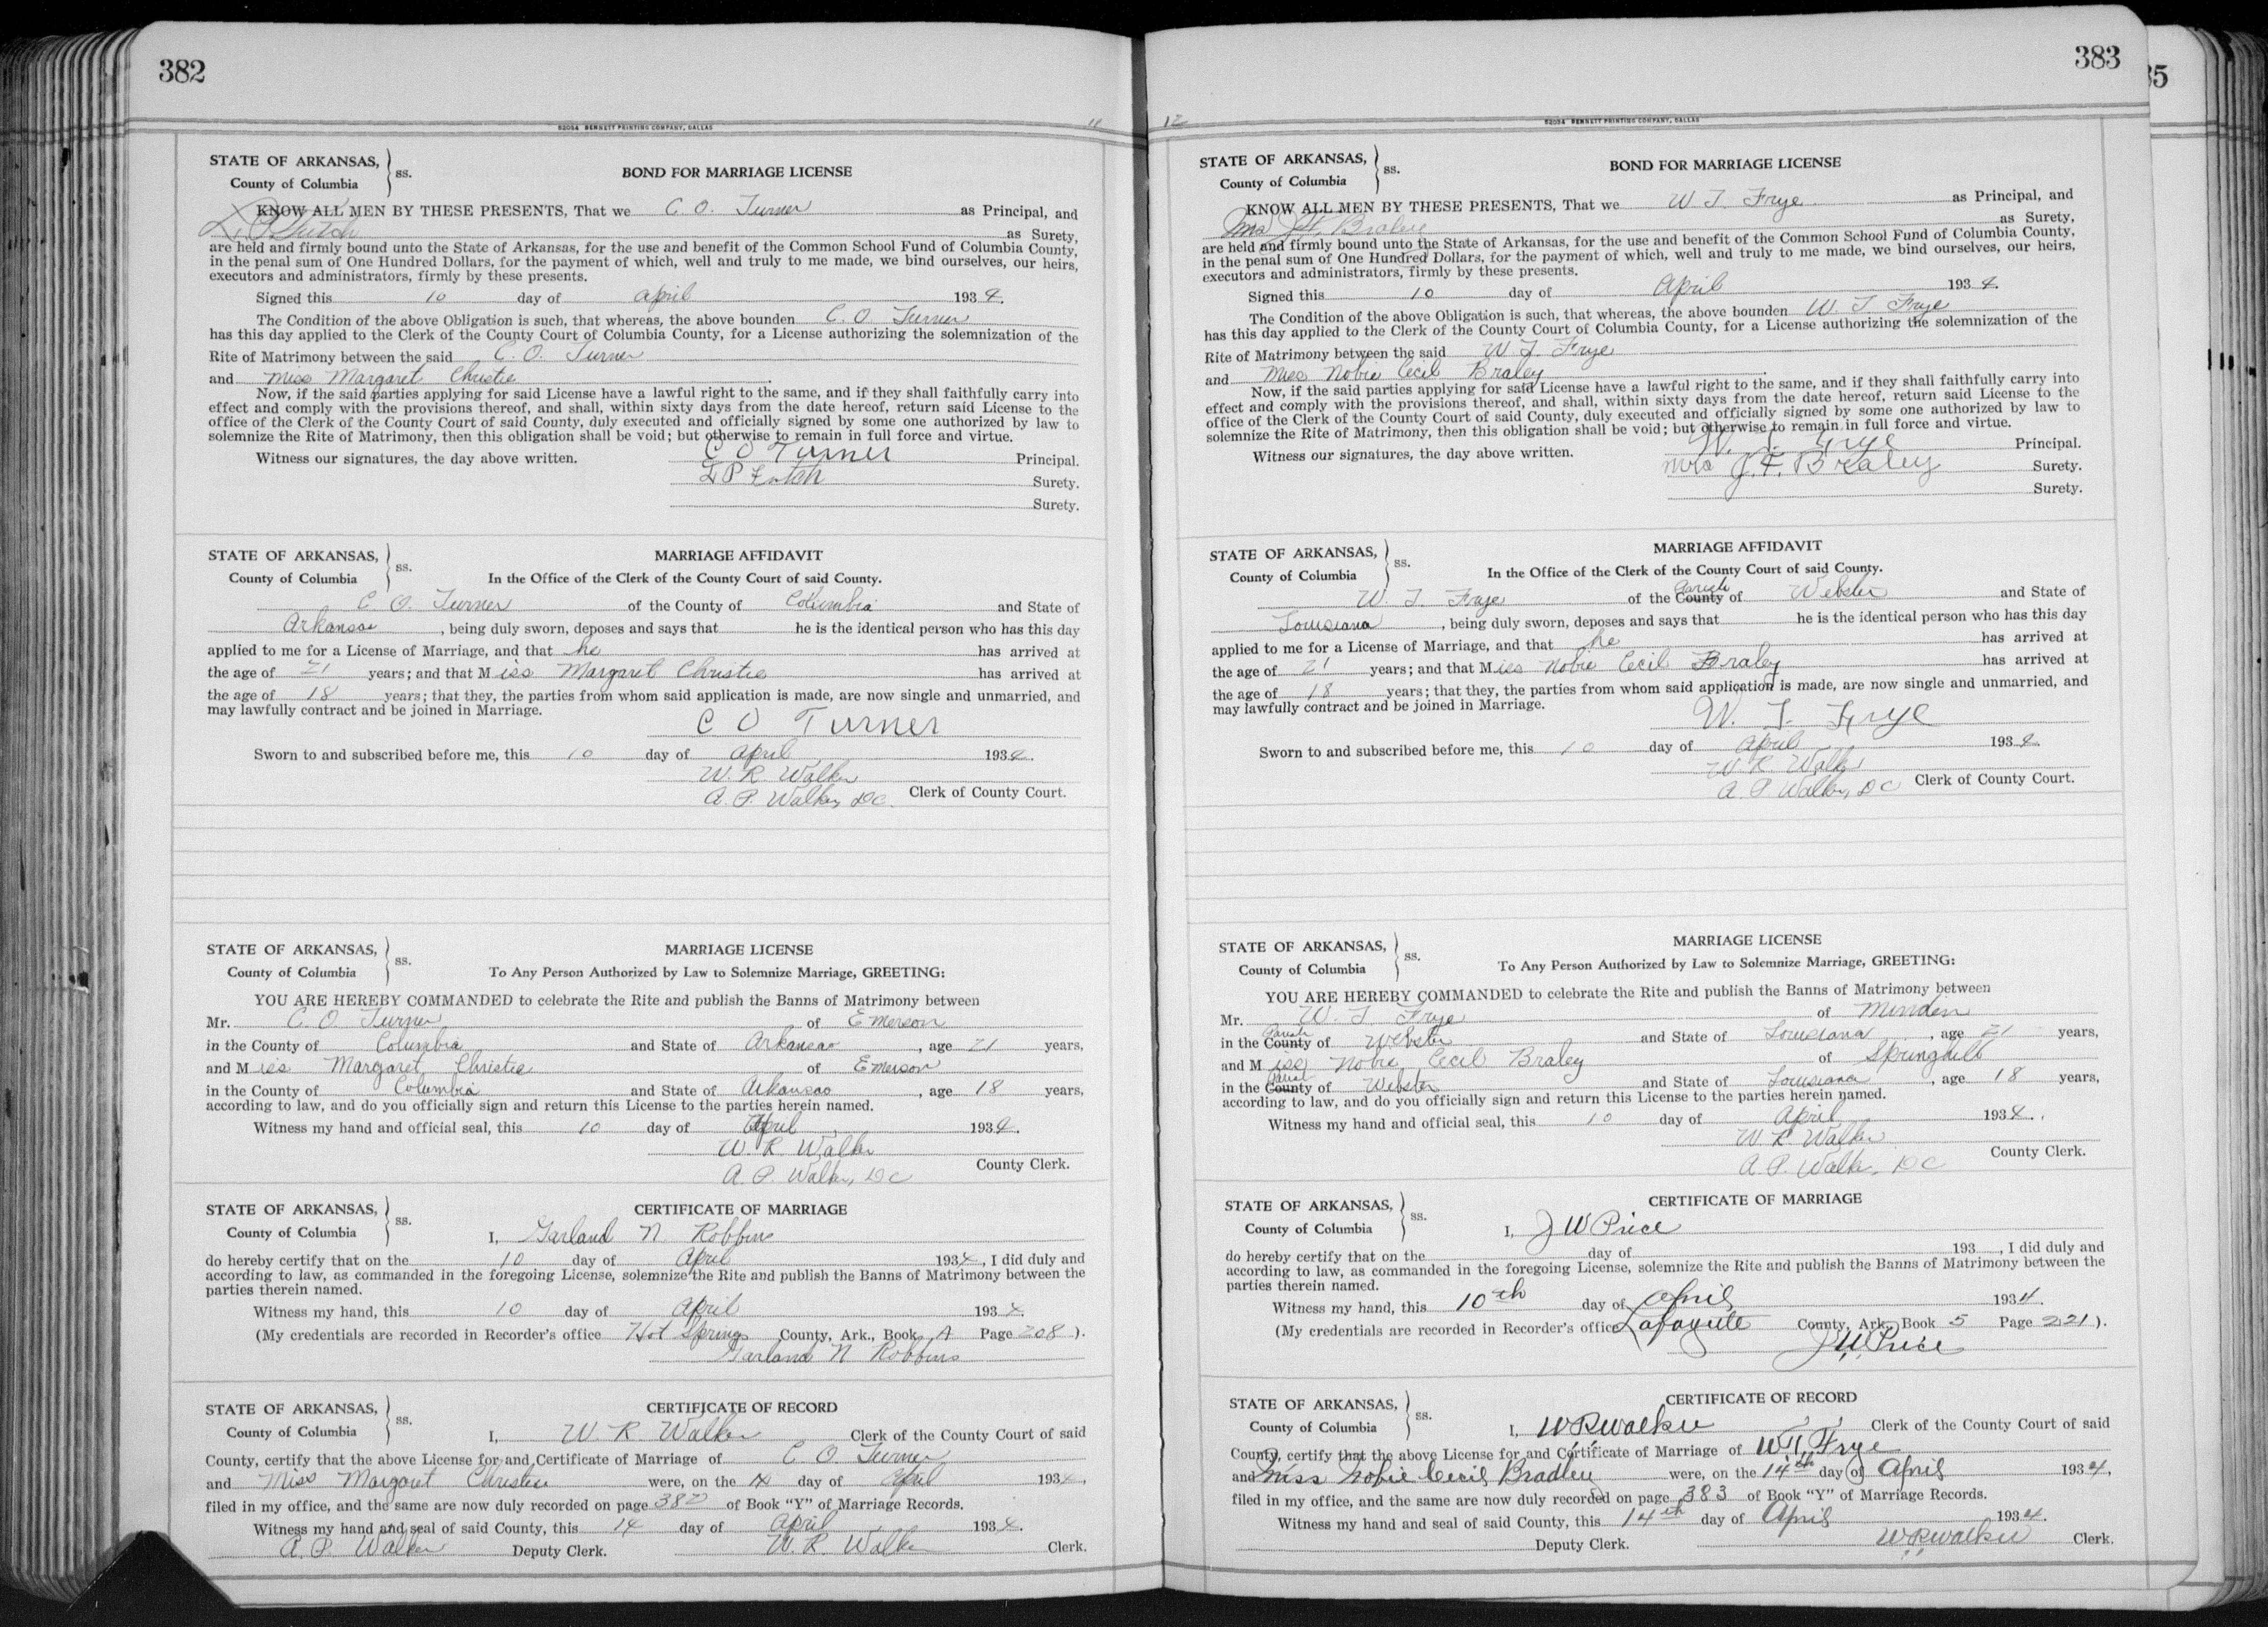 382
62054 BENNETT PRINTING COMPANY, DALLAS
11
STATE OF ARKANSAS,
County of Columbia
ss.
BOND FOR MARRIAGE LICENSE
KNOW ALL MEN BY THESE PRESENTS, That we C. O. Turner as Principal, and
as Surety,
are held and firmly bound unto the State of Arkansas, for the use and benefit of the Common School Fund of Columbia County,
in the penal sum of One Hundred Dollars, for the payment of which, well and truly to me made, we bind ourselves, our heirs,
executors and administrators, firmly by these presents.
Signed this 10 day of April 1934.
The Condition of the above Obligation is such, that whereas, the above bounden C. O. Turner
has this day applied to the Clerk of the County Court of Columbia County, for a License authorizing the solemnization of the
Rite of Matrimony between the said C. O. Turner
and Miss Margaret Christie
Now, if the said parties applying for said License have a lawful right to the same, and if they shall faithfully carry into
effect and comply with the provisions thereof, and shall, within sixty days from the date hereof, return said License to the
office of the Clerk of the County Court of said County, duly executed and officially signed by some one authorized by law to
solemnize the Rite of Matrimony, then this obligation shall be void; but otherwise to remain in full force and virtue.
Witness our signatures, the day above written. C O Turner Principal.
Surety.
Surety.
STATE OF ARKANSAS,
County of Columbia
ss.
MARRIAGE AFFIDAVIT
In the Office of the Clerk of the County Court of said County.
C. O. Turner of the County of Columbia and State of
Arkansas, being duly sworn, deposes and says that he is the identical person who has this day
applied to me for a License of Marriage, and that he has arrived at
the age of 21 years; and that Miss Margaret Christie has arrived at
the age of 18 years; that they, the parties from whom said application is made, are now single and unmarried, and
may lawfully contract and be joined in Marriage.
C O Turner
Sworn to and subscribed before me, this 10 day of April 1934.
W. R. Walker
A. P. Walker, DC. Clerk of County Court.
STATE OF ARKANSAS,
County of Columbia
ss.
MARRIAGE LICENSE
To Any Person Authorized by Law to Solemnize Marriage, GREETING:
YOU ARE HEREBY COMMANDED to celebrate the Rite and publish the Banns of Matrimony between
Mr. C. O. Turner of Emerson
in the County of Columbia and State of Arkansas, age 21 years,
and Miss Margaret Christie of Emerson
in the County of Columbia and State of Arkansas, age 18 years,
according to law, and do you officially sign and return this License to the parties herein named.
Witness my hand and official seal, this 10 day of April 1934.
W. R. Walker
A. P. Walker, DC County Clerk.
STATE OF ARKANSAS,
County of Columbia
ss.
CERTIFICATE OF MARRIAGE
I, Garland N. Robbins
do hereby certify that on the 10 day of April 1934, I did duly and
according to law, as commanded in the foregoing License, solemnize the Rite and publish the Banns of Matrimony between the
parties therein named.
Witness my hand, this 10 day of April 1934.
(My credentials are recorded in Recorder's office Hot Springs County, Ark., Book A Page 208).
Garland N Robbins
STATE OF ARKANSAS,
County of Columbia
ss.
CERTIFICATE OF RECORD
I, W. R. Walker Clerk of the County Court of said
County, certify that the above License for and Certificate of Marriage of C. O. Turner
and Miss Margaret Christie were, on the 14 day of April 1934,
filed in my office, and the same are now duly recorded on page 382 of Book "Y" of Marriage Records.
Witness my hand and seal of said County, this 14 day of April 1934.
A. P. Walker Deputy Clerk. W. R. Walker Clerk.
383
35
12
62054 BENNETT PRINTING COMPANY, DALLAS
STATE OF ARKANSAS,
County of Columbia
ss.
BOND FOR MARRIAGE LICENSE
KNOW ALL MEN BY THESE PRESENTS, That we W. T. Frye as Principal, and
Mrs J. F. Braley as Surety,
are held and firmly bound unto the State of Arkansas, for the use and benefit of the Common School Fund of Columbia County,
in the penal sum of One Hundred Dollars, for the payment of which, well and truly to me made, we bind ourselves, our heirs,
executors and administrators, firmly by these presents.
Signed this 10 day of April 1934.
The Condition of the above Obligation is such, that whereas, the above bounden W. T. Frye
has this day applied to the Clerk of the County Court of Columbia County, for a License authorizing the solemnization of the
Rite of Matrimony between the said W. T. Frye
and Miss Nobie Cecil Braley
Now, if the said parties applying for said License have a lawful right to the same, and if they shall faithfully carry into
effect and comply with the provisions thereof, and shall, within sixty days from the date hereof, return said License to the
office of the Clerk of the County Court of said County, duly executed and officially signed by some one authorized by law to
solemnize the Rite of Matrimony, then this obligation shall be void; but otherwise to remain in full force and virtue.
Witness our signatures, the day above written. W. T. Frye Principal.
Mrs J. F. Braley Surety.
Surety.
STATE OF ARKANSAS,
County of Columbia
ss.
MARRIAGE AFFIDAVIT
In the Office of the Clerk of the County Court of said County.
W. T. Frye of the County Parish of Webster and State of
Louisiana, being duly sworn, deposes and says that he is the identical person who has this day
applied to me for a License of Marriage, and that he has arrived at
the age of 21 years; and that Miss Nobie Cecil Braley has arrived at
the age of 18 years; that they, the parties from whom said application is made, are now single and unmarried, and
may lawfully contract and be joined in Marriage.
W. T. Frye
Sworn to and subscribed before me, this 10 day of April 1934.
W. R. Walker
A. P. Walker, DC Clerk of County Court.
STATE OF ARKANSAS,
County of Columbia
ss.
MARRIAGE LICENSE
To Any Person Authorized by Law to Solemnize Marriage, GREETING:
YOU ARE HEREBY COMMANDED to celebrate the Rite and publish the Banns of Matrimony between
Mr. W. T. Frye of Minden
in the County Parish of Webster and State of Louisiana, age 21 years,
and Miss Nobie Cecil Braley of Springhill
in the County Parish of Webster and State of Louisiana, age 18 years,
according to law, and do you officially sign and return this License to the parties herein named.
Witness my hand and official seal, this 10 day of April 1934.
W R Walker
A. P. Walker, DC County Clerk.
STATE OF ARKANSAS,
County of Columbia
ss.
CERTIFICATE OF MARRIAGE
I, J W Price
do hereby certify that on the day of 193 , I did duly and
according to law, as commanded in the foregoing License, solemnize the Rite and publish the Banns of Matrimony between the
parties therein named.
Witness my hand, this 10th day of April 1934.
(My credentials are recorded in Recorder's office Lafayette County, Ark., Book 5 Page 221).
J. W. Price
STATE OF ARKANSAS,
County of Columbia
ss.
CERTIFICATE OF RECORD
I, W R Walker Clerk of the County Court of said
County, certify that the above License for and Certificate of Marriage of W T Frye
and Miss Nobie Cecil Bradley were, on the 14th day of April 1934,
filed in my office, and the same are now duly recorded on page 383 of Book "Y" of Marriage Records.
Witness my hand and seal of said County, this 14th day of April 1934.
Deputy Clerk. W R Walker Clerk.